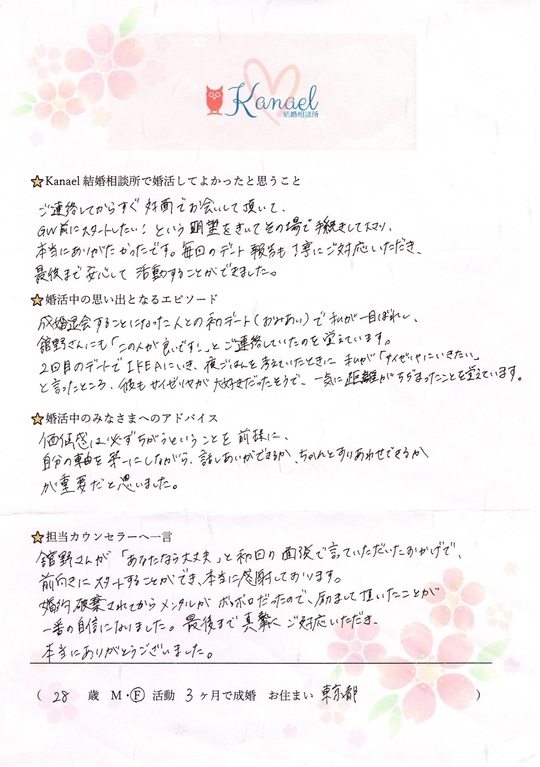 Kanael
結婚相談所
Kanael 結婚相談所で婚活してよかったと思うこと
ご連絡してからすぐ対面でお会いして頂いて、
GW前にスタートしたい！という願望をきいてその場で手続きしてスマン、
本当にありがたかったです。毎回のデート報告も丁寧にご対応いただき、
最後まで安心して活動することができました。
婚活中の思い出となるエピソード
成婚退会することになった人との初デート(お見あい)で私が一目ぼれし、
舘野さんにも「この人が良いです！」とご連絡していたのを覚えています。
2回目のデートでIKEAにいき、夜ごはんを考えていたときに私が「サイゼリヤにいきたい」
と言ったところ、彼もサイゼリヤが大好きだったそうで、一気に距離がちぢまったことを覚えています。
婚活中のみなさまへのアドバイス
価値感は必ずちがうということを前提に、
自分の軸を第一にしながら、話しあいができるか、ちゃんとすりあわせできるか
が重要だと思いました。
担当カウンセラーへ一言
舘野さんが「あなたなら大丈夫」と初回の面談で言っていただいたおかげで、
前向きにスタートすることができ、本当に感謝しております。
婚約破棄されてからメンタルがボロボロだったので、励まして頂いたことが
一番の自信になりました。最後まで真摯にご対応いただき、
本当にありがとうございました。
( 28 歳 M・F 活動 3 ヶ月で成婚 お住まい 東京都 )